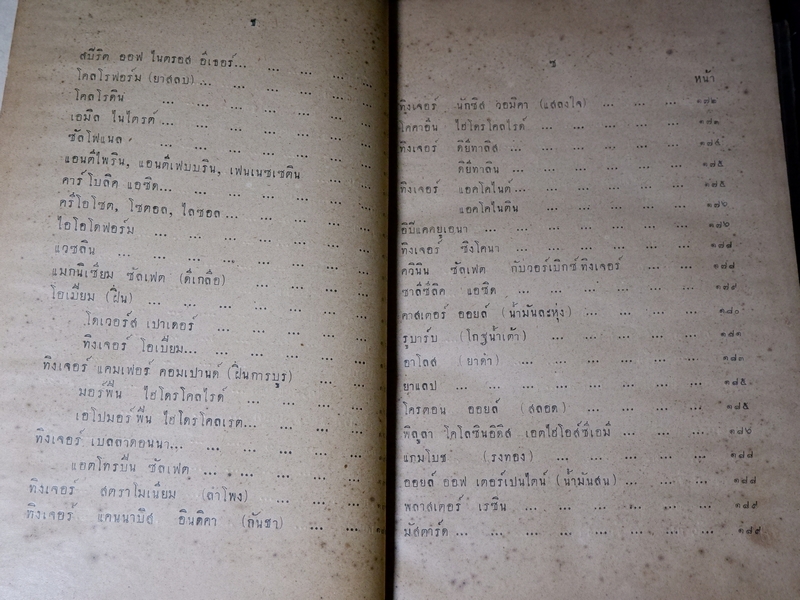 ช
สปีริต ออฟ ไนตรอส อีเธอร์... ... ... ...
โคลโรฟอร์ม (ยาสลบ)... ... ... ...
โคลโรดิน ... ... ... ... ...
เอมิล ไนไตรต์... ... ... ... ...
ซัลโฟแนล ... ... ... ... ...
แอนตีไพริน, แอนตีเฟบบริน, เฟนเนซเซติน
คาร์โบลิค แอซิด... ... ... ... ...
ครีโอโซต, โซตอล, ไลซอล... ... ... ...
ไอโอโดฟอร์ม ... ... ... ... ...
แวซลิน ... ... ... ... ...
แมกนีเซี่ยม ซัลเฟต (ดีเกลือ) ... ... ...
โอเมี่ยม (ฝิ่น) ... ... ... ... ...
โดเวอร์ส เปาเดอร์ ... ... ... ...
ทิงเจอร์ โอเบี่ยม... ... ... ... ...
ทิงเจอร์ แคมเฟอร์ คอมเปานด์ (ฝิ่นการบูร) ... ...
มอร์ฟีน ไฮโดรโคลไรด์ ... ... ...
เอโปมอร์ฟีน ไฮโดรโคลเรต... ... ...
ทิงเจอร์ เบลลาดอนนา... ... ... ... ...
แอตโทรปีน ซัลเฟต ... ... ... ...
ทิงเจอร์ สตราโมเนียม (ลำโพง) ... ... ...
ทิงเจอร์ แคนนาบิส อินดิคา (กันชา) ... ... ...
ซ
หน้า
ทิงเจอร์ นักซิส วอมิคา (แสลงใจ) ... ... ... ๑๗๒
โคคาอิน ไฮโดรโคลไรด์ ... ... ... ... ๑๗๓
ทิงเจอร์ ดิยีทาลิส ... ... ... ... ... ๑๗๔
ดิยีทาลิน ... ... ... ... ... ๑๗๕
ทิงเจอร์ แอคโคไนต์... ... ... ... ... ๑๗๕
แอคโคไนติน ... ... ... ... ๑๗๖
อิปีแคคยุเอนา ... ... ... ... ... ... ๑๗๖
ทิงเจอร์ ซิงโคนา ... ... ... ... ... ๑๗๘
ควินิน ซัลเฟต กับวอร์เบิกซ์ทิงเจอร์ ... ... ... ๑๗๘
ซาลีซีลิค แอซิด ... ... ... ... ... ๑๗๙
คาสเตอร์ ออยล์ (น้ำมันละหุ่ง) ... ... ... ๑๘๐
รูบาร์บ (โกฐน้ำเต้า) ... ... ... ... ๑๘๑
อาโลส (ยาดำ) ... ... ... ... ... ๑๘๓
ยาแลป ... ... ... ... ... ... ๑๘๕
โครตอน ออยล์ (สลอด) ... ... ... ... ๑๘๕
พิลูลา โคโลซินธิดิส เอตไฮโอส์ซีเอมี ... ... ... ๑๘๖
แกมโบช (รงทอง) ... ... ... ... ๑๘๘
ออยล์ ออฟ เตอร์เปนไตน์ (น้ำมันสน) ... ... ... ๑๘๘
พลาสเตอร์ เรซิน ... ... ... ... ... ๑๘๙
มัสตาร์ด... ... ... ... ... ... ... ๑๘๙